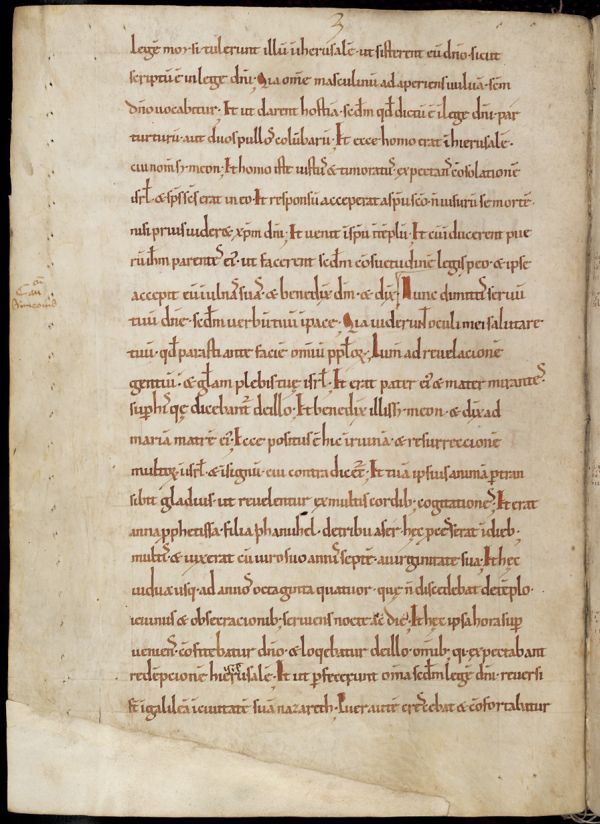 3
legẽ moysi. tulerunt illũ ĩ hierusalẽ. ut sisterent eũ dño. sicut
scriptũ ẽ in lege dñi. Quia om̃e masculinũ adaperiens uuluã. scm̃
dño uocabitur. Et ut darent hostiã. scdm̃ qđ dictũ ẽ ĩ lege dñi. par
turturũ. aut duos pullos colũbarũ. Et ecce homo erat ĩ hierusalẽ.
cui nom̃ symeon. Et homo iste iustus & timoratus. expectans cõsolationẽ
isrł. & sps̃ scs̃ erat in eo. Et responsũ acceperat a spũ scõ. ñ uisurũ se mortẽ.
nisi prius uider& xpm̃ dñi. Et uenit ĩ spũ ĩ tẽplũ. Et cũ ĩducerent pue
rũ ihm̃ parentes ei. ut facerent scdm̃ cõsuetudinẽ legis p eo. & ipse
accepit eũ ĩ ulnas suas. & benedix dm̃. & dix. Nunc dimittis seruũ
tuũ dñe. scdm̃ uerbũ tuũ ĩ pace. Quia uiderunt oculi mei salutare
tuũ. qđ parasti ante faciẽ omiũ pplorũ. Lum̃ ad reuelacionẽ
gentiũ. & głam plebis tuę isrł. Et erat pater ei & mater mirantes
sup his quę dicebantur de illo. Et benedix illis symeon. & dix ad
mariã matrẽ ei. Ecce positus ẽ hic ĩ ruinã. & resurreccionẽ
multorũ ĩ isrł. & ĩ signũ. cui contradicetur. Et tuã ipsius animã ptran
sibit gladius. ut reuelentur ex multis cordib; cogitationes. Et erat
anna pphetissa. filia phanuhel. de tribu aser. hęc pcesserat ĩ dieb;
multis. & uixerat cũ uiro suo annis septẽ. a uirginitate sua. Et hęc
uidua usq. ad annos octaginta quatuor. quę ñ discedebat de tẽplo.
ieiuniis & obsecracionib; seruiens nocte ac die. Et hęc ipsa hora sup
ueniens. cõfitebatur dño. & loqebatur de illo. omib; qi expectabant
redẽpcionẽ hierusalẽ. Et ut pfecerunt omĩa scdm̃ legẽ dñi. reuersi
st̃ ĩ galileã ĩ ciuitatẽ suã nazareth. Puer autẽ crescebat & cõfortabatur